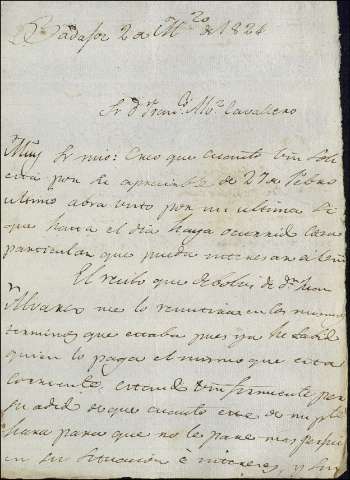 Badajoz 2 de M.zo de 1824
Sr Dn Franco Ma Cavallero
Muy Sr mio: Creo que cuanto Vm soli
cita por su apreciable de 27 de Febro
ultimo abra visto por mi ultima si
que hasta el dia haya ocurrido cosa
particular que pueda interesar a Vm
El recibo que debolvi de Dn Juan
Alvarez me lo remitira en los mismos
terminos que estaba pues ya he sabido
quien lo paga el mismo que esta
corriente, estando Vm firmemente per
suadido de que cuanto este de mi pte
hara para que no le pare mas perjui
en su situacion e intereses, y sin